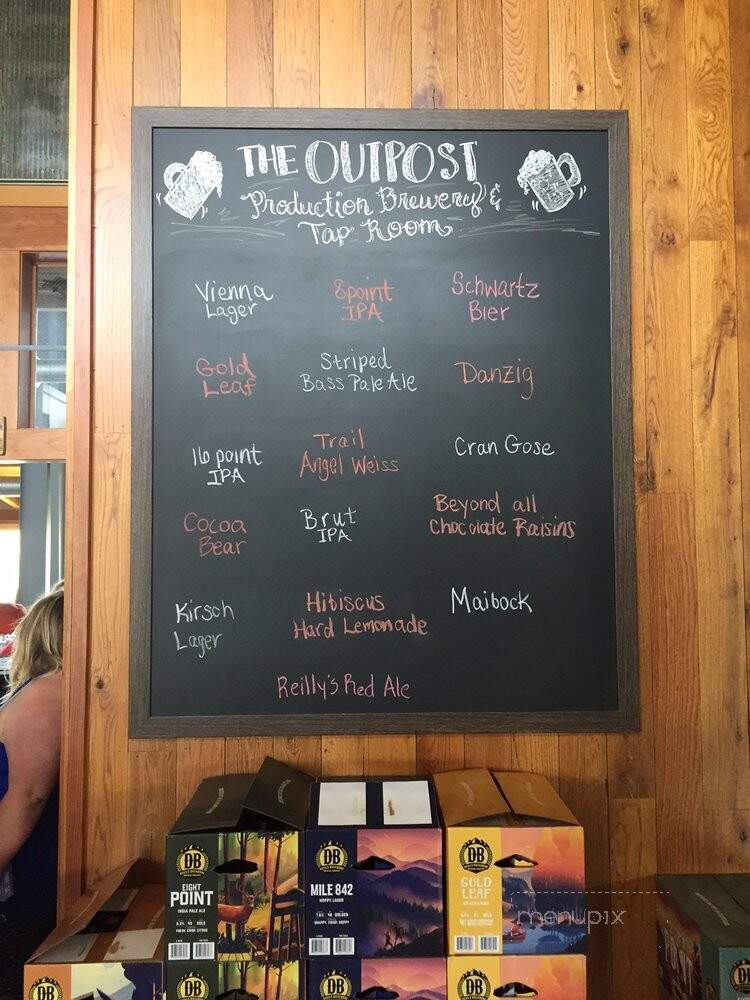 THE OUTPOST
Production Brewery &
Tap Room
Vienna
Lager
8point
IPA
Schwartz
Bier
Gold
Leaf
Striped
Bass Pale Ale
Danzig
16 point
IPA
Trail
Angel Weiss
Cran Gose
Cocoa
Bear
Brut
IPA
Beyond all
Chocolate Raisins
Kirsch
Lager
Hibiscus
Hard Lemonade
Maibock
Reilly's Red Ale
DB
EIGHT
POINT
INDIA PALE ALE
DB
MILE 842
HOPPY LAGER
DB
GOLD
LEAF
menupix
DB
DB
DB
DB
DB